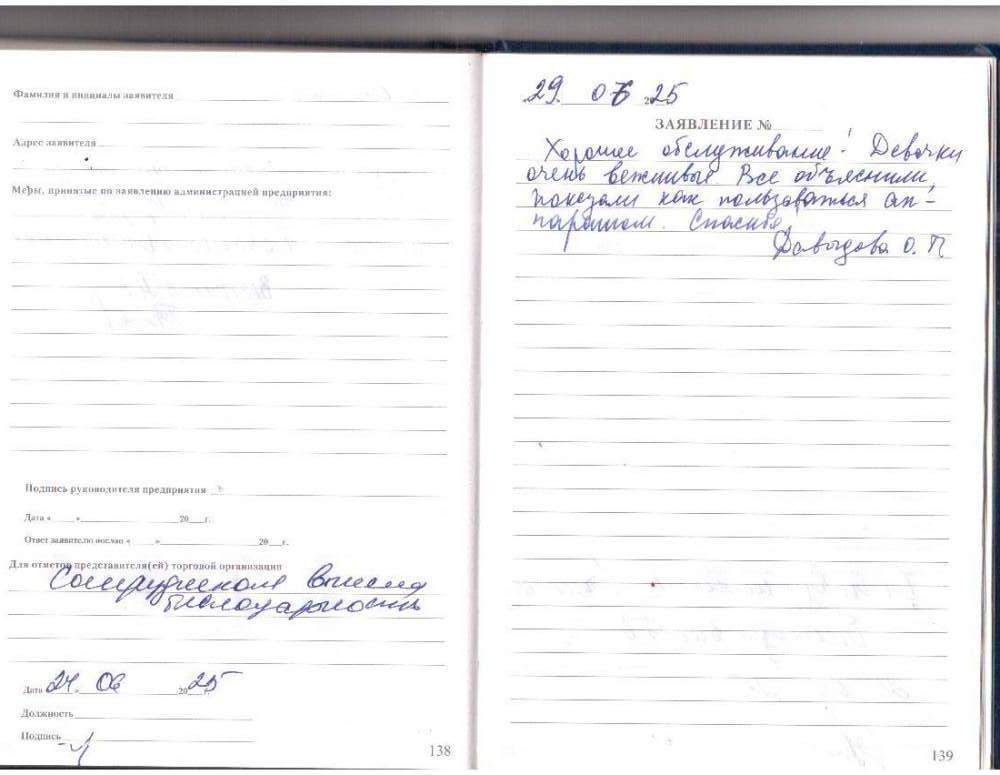 Фамилия и инициалы заявителя
Адрес заявителя
Меры, принятые по заявлению администрацией предприятия:
Подпись руководителя предприятия
Дата « » 20 г.
Ответ заявителю послан « » 20 г.
Для отметок представителя(ей) торговой организации
Сотрудникам вынесена
благодарность
Дата 24. 06 2025
Должность
Подпись
138
29. 06 25
ЗАЯВЛЕНИЕ №
Хорошее обслуживание! Девочки
очень вежливые. Все объяснили,
показали как пользоваться ап-
паратом. Спасибо,
Давыдова О. П
139